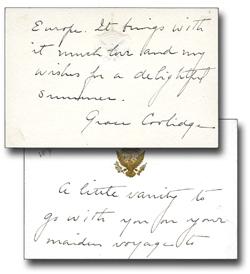 Europe. It brings with
it much love and my
wishes for a delightful
summer.
Grace Coolidge
A little vanity to
go with you on your
maiden voyage to